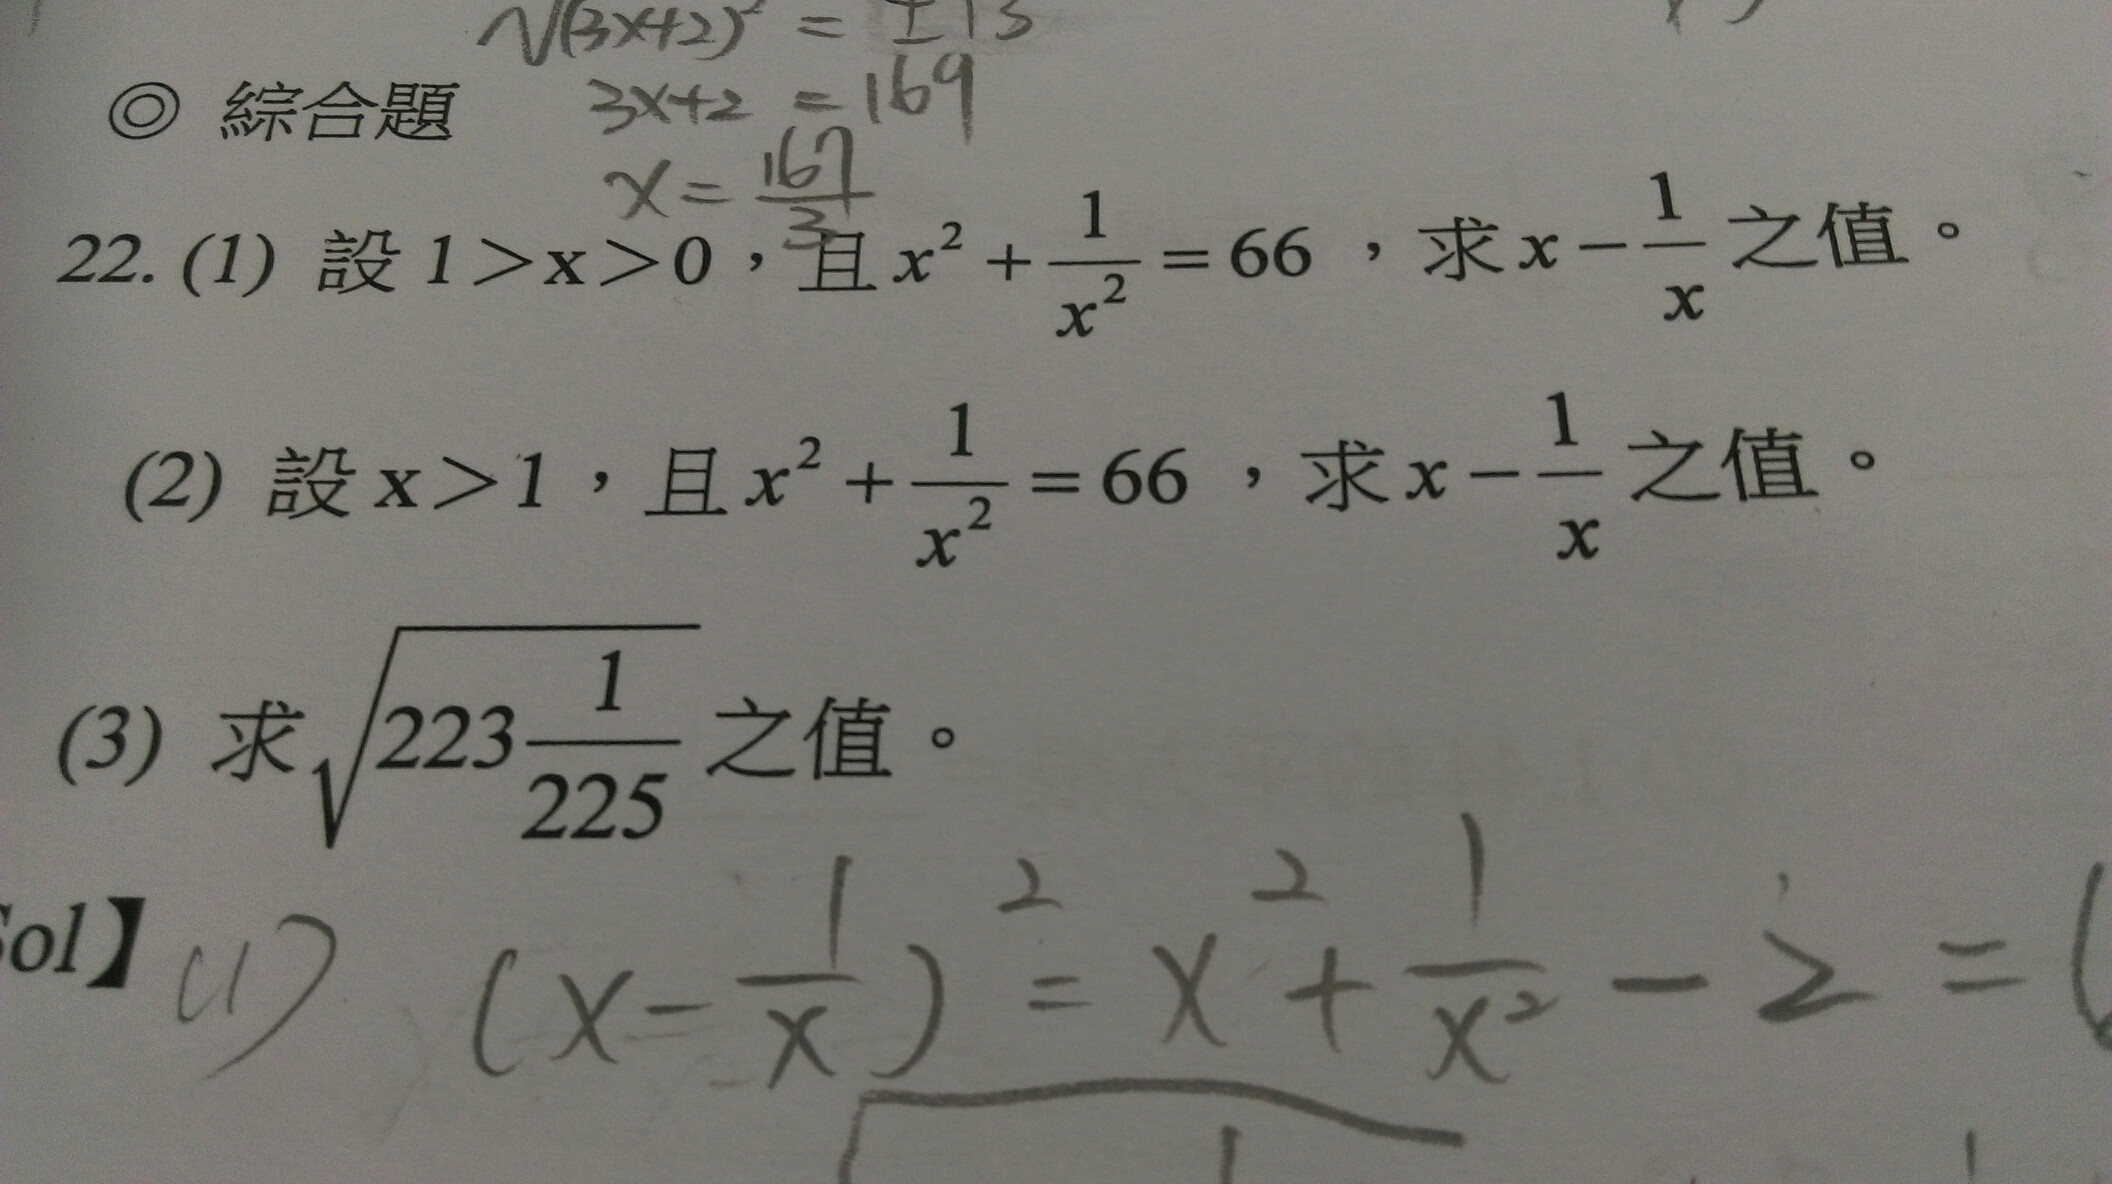 √(3x+2)² = ±13
◎ 綜合題 3x+2 = 169
x = 167/3
22. (1) 設 1＞x＞0，且 x² + 1/x² = 66，求 x − 1/x 之值。
(2) 設 x＞1，且 x² + 1/x² = 66，求 x − 1/x 之值。
(3) 求 √(223 1/225) 之值。
ol】(1) (x − 1/x)² = x² + 1/x² − 2 =